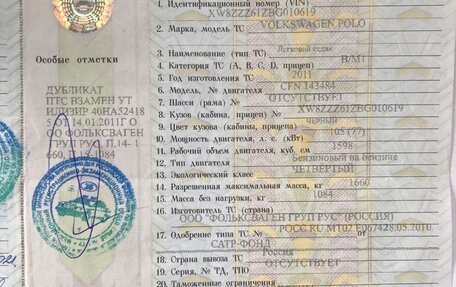 Особые отметки
ДУБЛИКАТ
ПТС ВЗАМЕН УТ
ИЛИЗИР 40НА52418
ОТ 14.01.2011Г О
ОО ФОЛЬКСВАГЕН
ГРУП РУС П.14- 1
660, 1084
1. Идентификационный номер (VIN) XW8ZZZ61ZBG010619
2. Марка, модель ТС VOLKSWAGEN POLO
3. Наименование (тип ТС) Легковой седан
4. Категория ТС (A, B, C, D, прицеп) B/M1
5. Год изготовления ТС 2011
6. Модель, № двигателя CFN 143484
7. Шасси (рама) № ОТСУТСТВУЕТ
8. Кузов (кабина, прицеп) № XW8ZZZ61ZBG010619
9. Цвет кузова (кабины, прицепа) ЧЕРНЫЙ
10. Мощность двигателя, л. с. (кВт) 105 (77)
11. Рабочий объем двигателя, куб. см 1598
12. Тип двигателя Бензиновый на бензине
13. Экологический класс ЧЕТВЕРТЫЙ
14. Разрешенная максимальная масса, кг 1660
15. Масса без нагрузки, кг 1084
16. Изготовитель ТС (страна)
ООО "ФОЛЬКСВАГЕН ГРУП РУС" (РОССИЯ)
17. Одобрение типа ТС № РОСС RU.MT02.E06742 от 28.05.2010
САТР-ФОНД
18. Страна вывоза ТС Россия
19. Серия, № ТД, ТПО ОТСУТСТВУЕТ
20. Таможенные ограничения